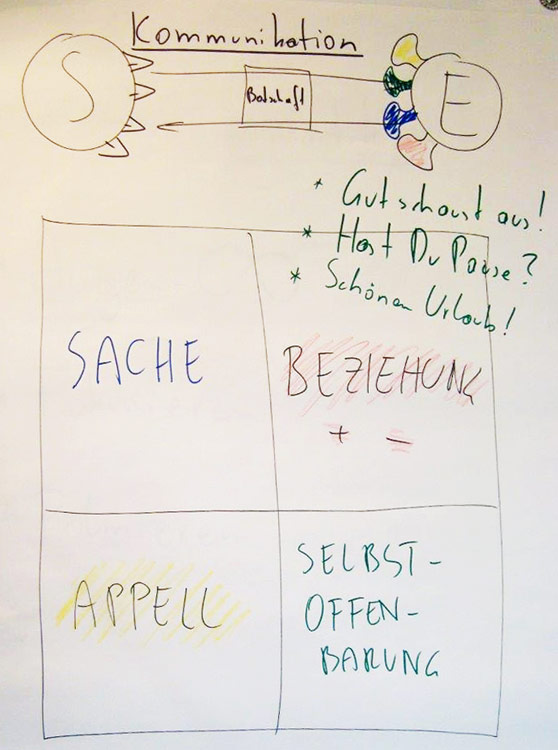 Kommunikation
S
Botschaft
E
* Gut schaust aus!
* Hast Du Pause?
* Schönen Urlaub!
SACHE
BEZIEHUNG
+ -
APPELL
SELBST-
OFFEN-
BARUNG